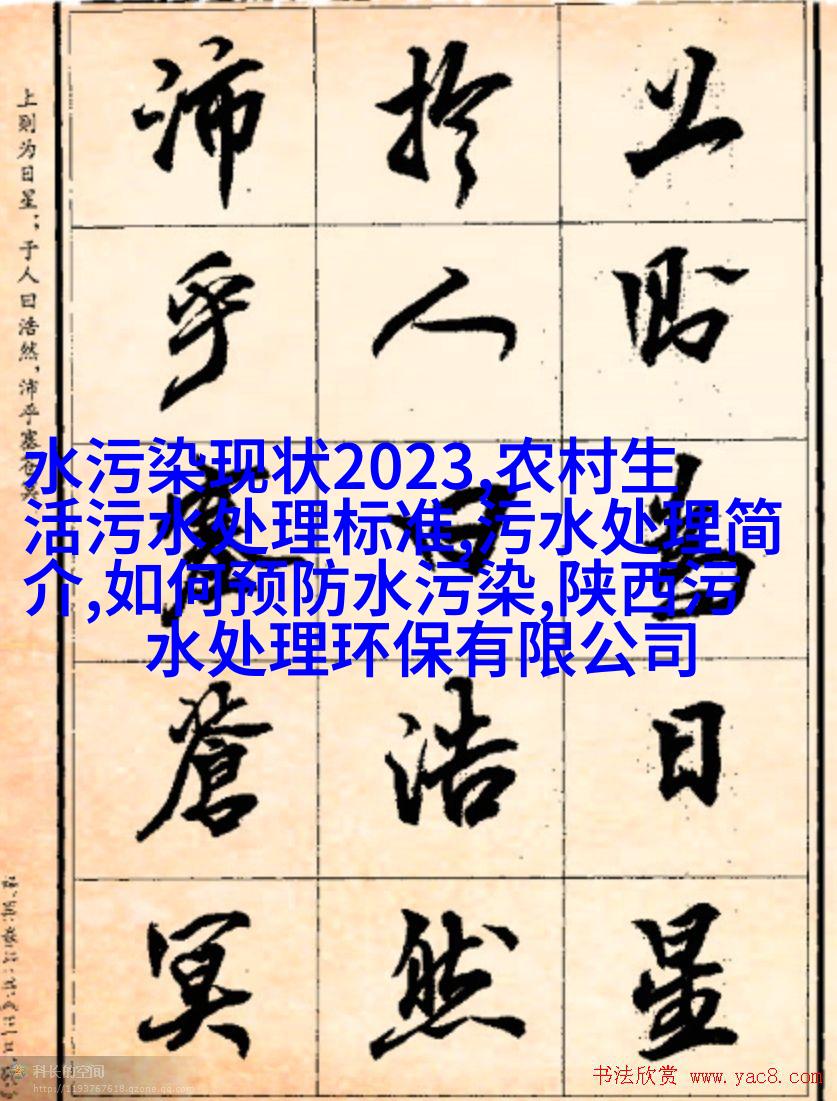 上则为日星
於人曰浩然
沛乎塞蒼冥
上则为日星；于人曰浩然，沛乎塞苍冥
水污染现状2023,农村生
活污水处理标准,污水处理简
介,如何预防水污染,陕西污
水处理环保有限公司
科长的空间
http://1193767618.qzone.qq.com
书法欣赏 www.yac8.com